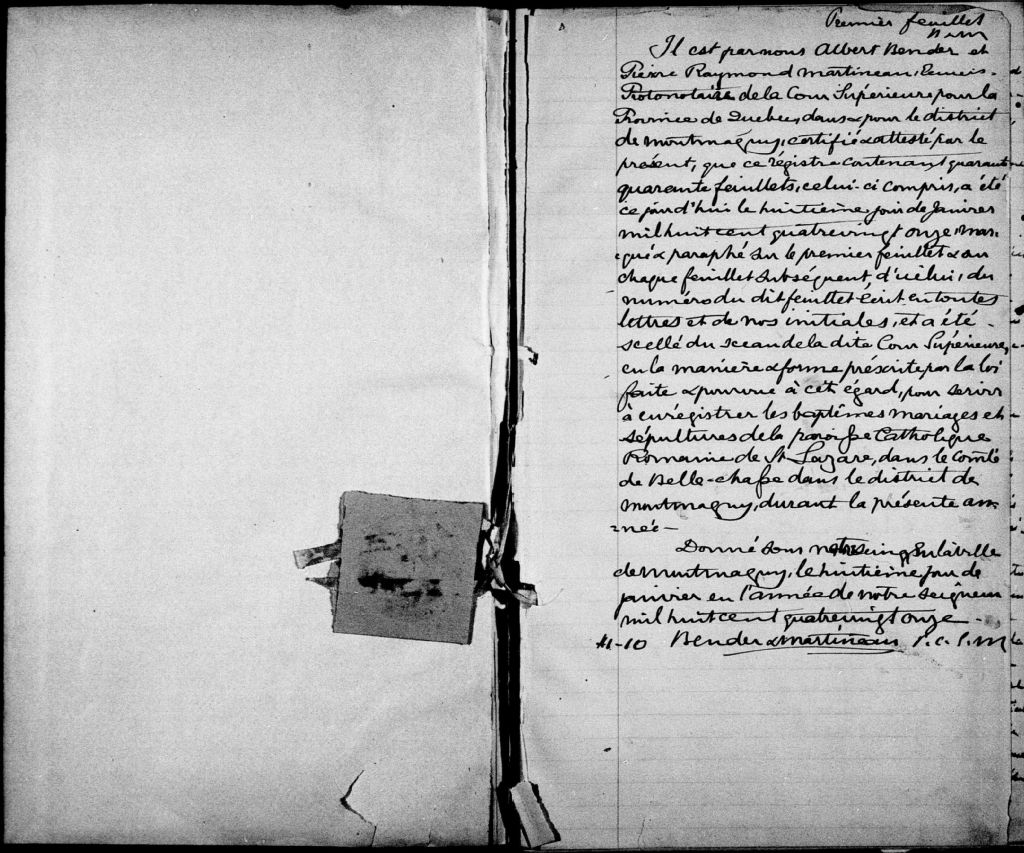 Premier feuillet
B & M
Il est par nous Albert Bender et
Pierre Raymond Martineau, Ecuiers.
Protonotaire de la Cour Supérieure pour la
Province de Quebec, dans & pour le district
de Montmagny, certifié & attesté par le
présent, que ce régistre contenant quarante
quarante feuillets, celui-ci compris, a été
ce jourd'hui le huitième jour de Janvier
mil huit cent quatrevingt onze, mar-
qué & paraphé sur le premier feuillet & sur
chaque feuillet subséquent, d'icelui, du
numéro du dit feuillet écrit en toutes
lettres et de nos initiales, et a été -
scellé du sceau de la dite Cour Supérieure,
en la manière & forme préscrite par la loi
faite & pourvue à cet égard, pour servir
à enrégistrer les baptêmes mariages et
sépultures de la paroisse Catholique
Romaine de St Lazare, dans le Comté
de Belle-chasse dans le district de
Montmagny, durant la présente an-
née -
Donné sous notre seing en la ville
de Montmagny, le huitième jour de
janvier en l'année de notre Seigneur
mil huit cent quatrevingt onze -
Bender & Martineau P. C. S. M